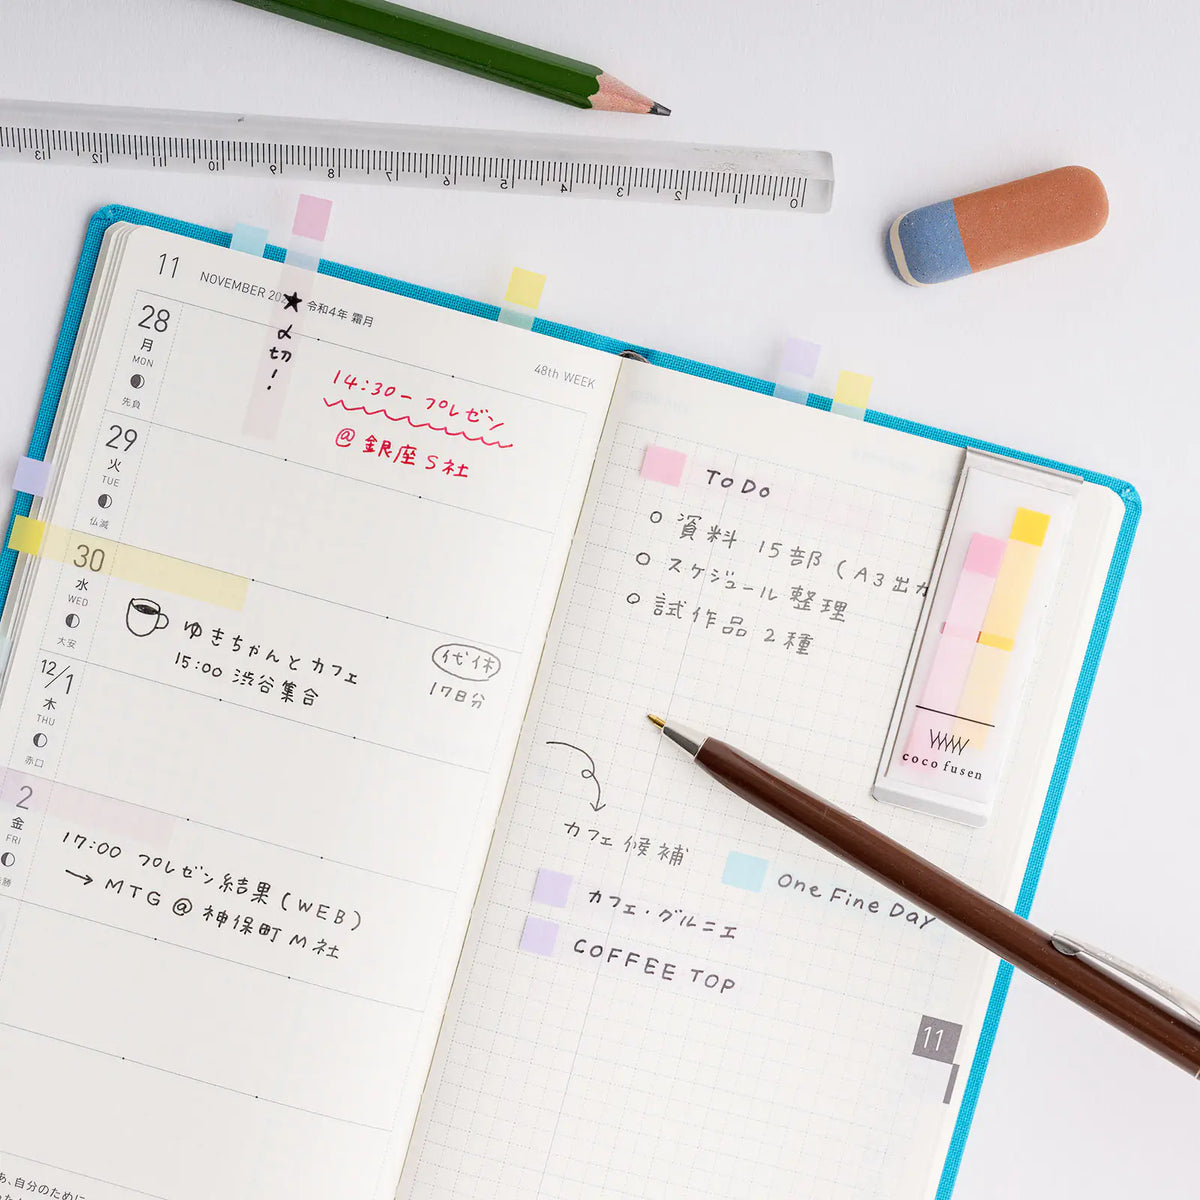 13 12 11 10 9 8 7 6 5 4 3 2 1 0
11 NOVEMBER 202 令和4年 霜月
48th WEEK
★〆切!
28
月
MON
先負
14:30ー プレゼン
@ 銀座 S社
29
火
TUE
仏滅
30
水
WED
大安
ゆきちゃんとカフェ
15:00 渋谷集合
代休
17日分
12/1
木
THU
赤口
2
金
FRI
勝
17:00 プレゼン結果(WEB)
→ MTG @ 神保町 M社
あ、自分のために
ToDo
資料 15部(A3出力
スケジュール 整理
試作品 2種
カフェ候補
One Fine Day
カフェ・グルニエ
COFFEE TOP
coco fusen
11